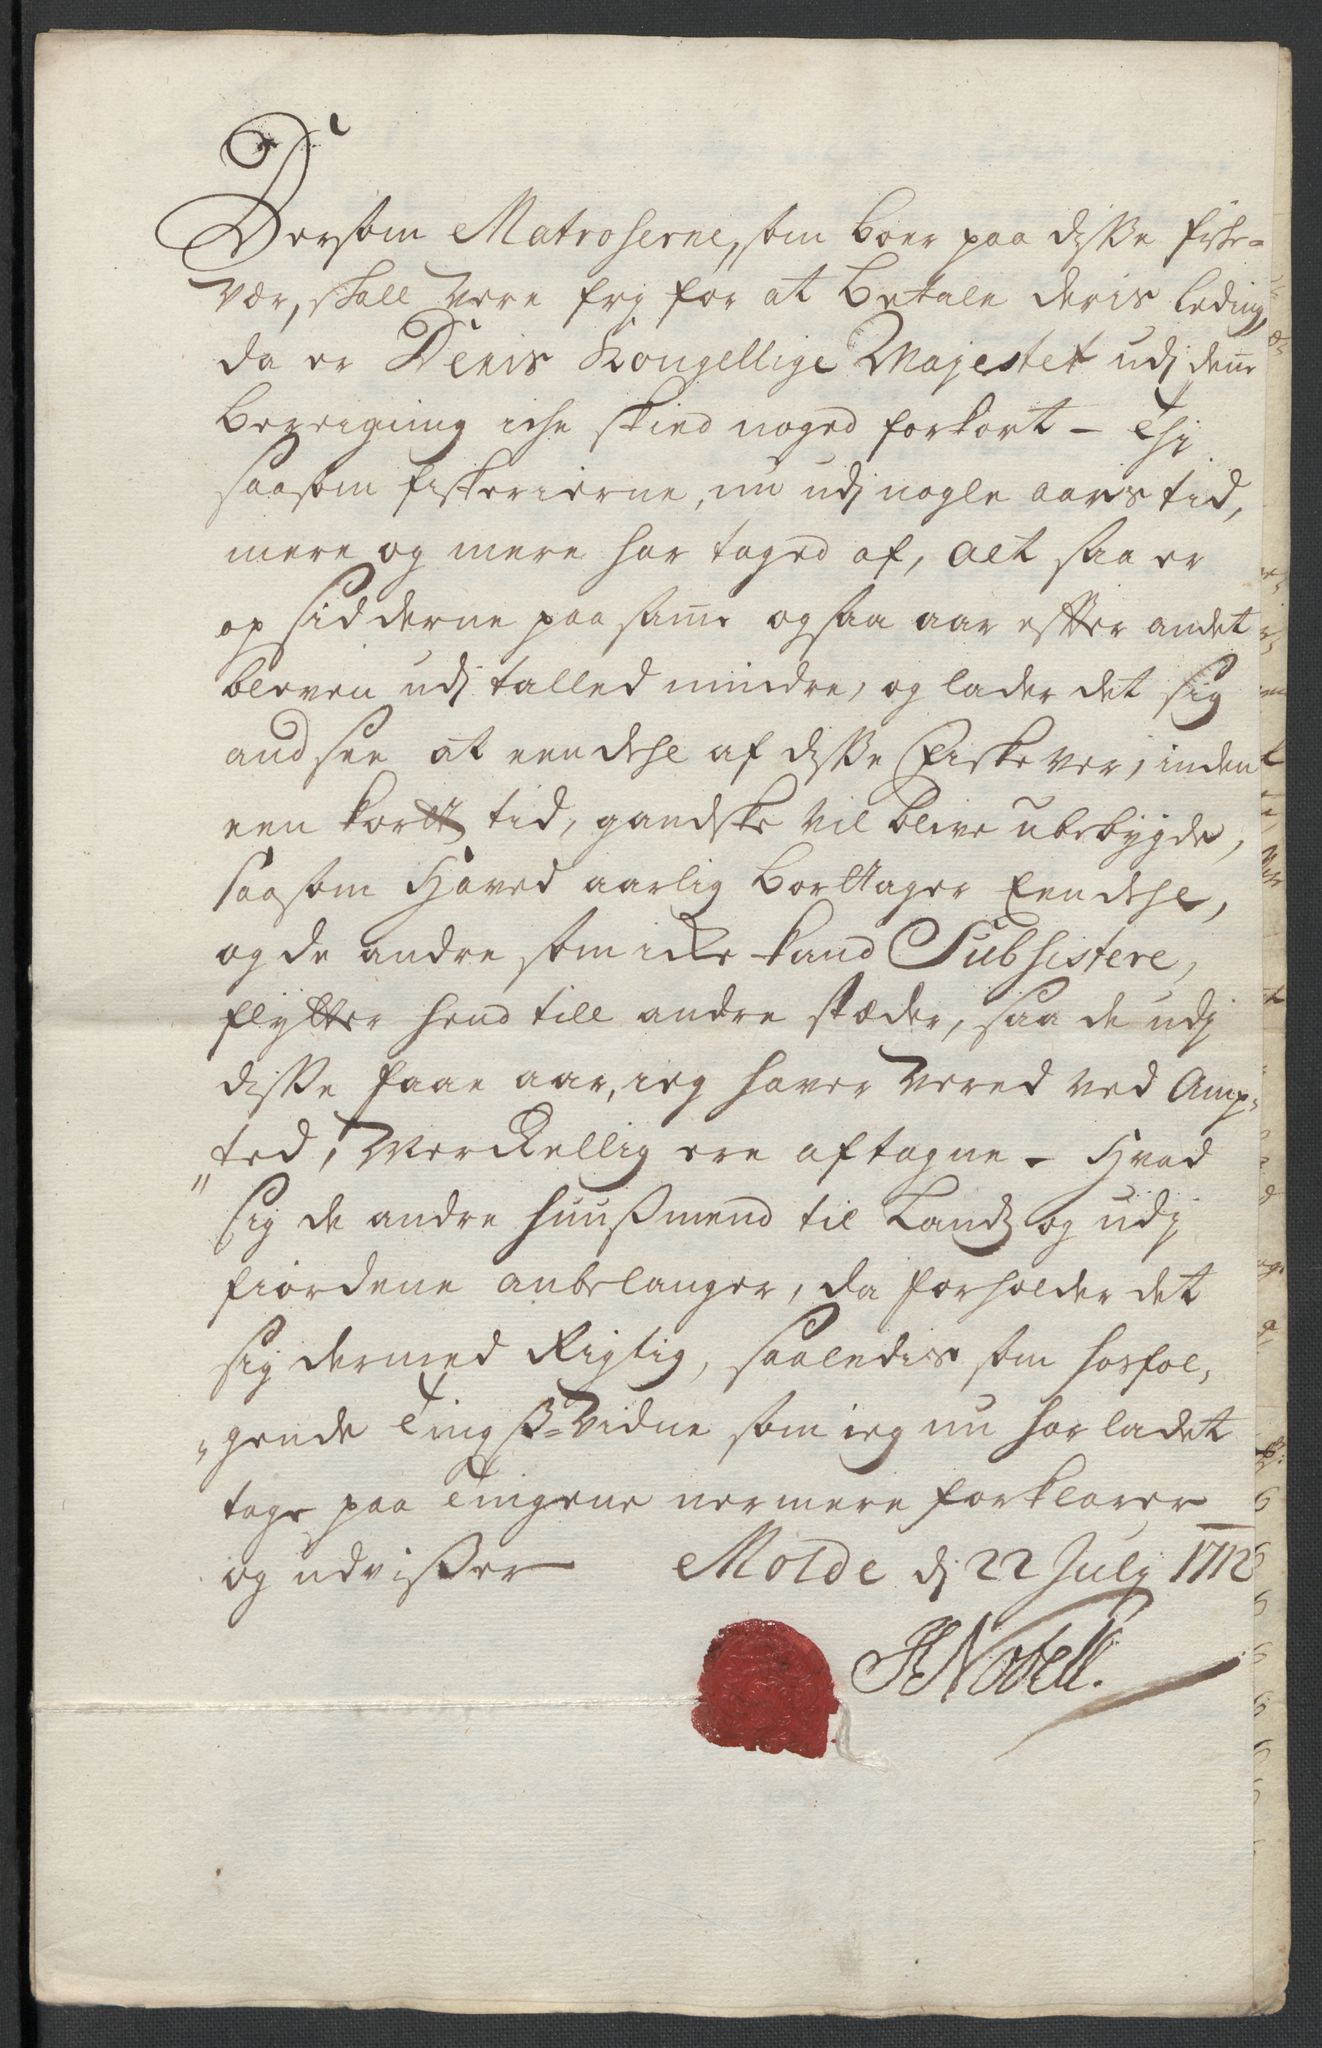 Dersom Matroserne, som boer paa disse fiske-
vær, skall vere fry for at betale deris leding,
da er Deris Kongellige Majestet udj denne
beregning iche skied noged forkort - Thj
saasom fiskerierne, nu udj nogle aars tid,
mere og mere har taged af, alt saa er
opsidderne paa samme ogsaa aar efter andet
bleven udj talled mindre, og lader det sig
andsee at een dehl af disse Fiskever, inden
een kortt tid, gandske vil blive ubebygde,
saasom Haved aarlig borttager Een dehl,
og de andre som icke kand Subsistere,
flytter hend till andre stæder, saa de udj
disse faae aar, ieg haver vered ved Amp-
"ted, Merckellig ere aftagne - Hvad
sig de andre huusmend til Lands og udj
fiordene anbelanger, da forholder det
sig dermed Rigtig, saaledis som hosføl-
"gende Tingsvidne som ieg nu har ladet
tage paa Tingene nermere forklarer
og udvisser Molde dj 22 Julj 1712
H Nobell.